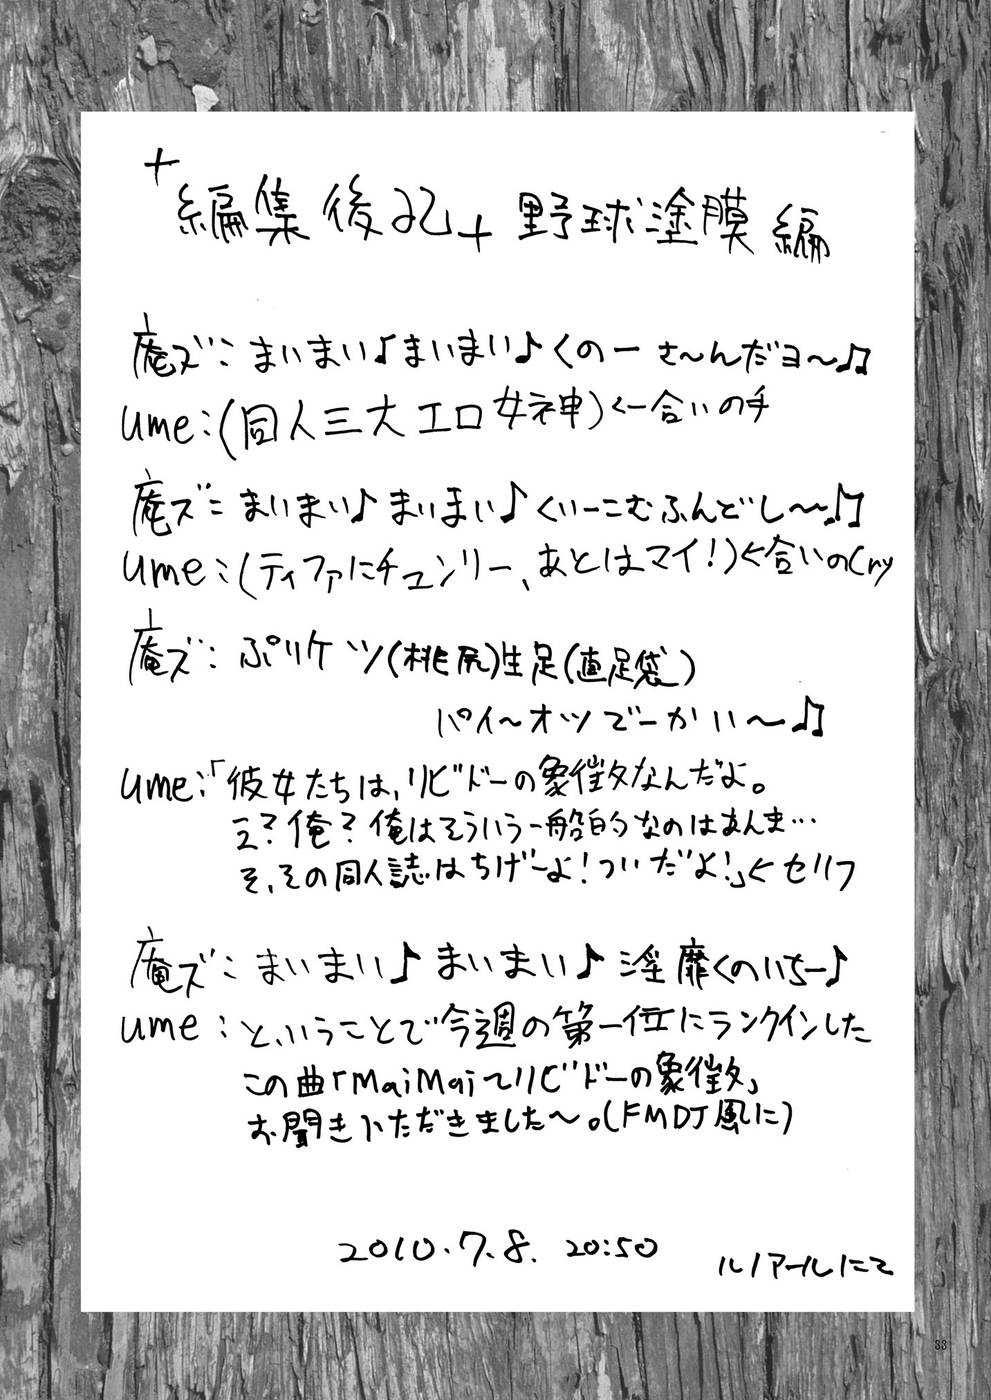 +編集後記+ 野球塗膜編
庵ズ：まいまい♪まいまい♪くのーさ〜んだヨ〜♫
ume：(同人三大エロ女神)←合いの手
庵ズ：まいまい♪まいまい♪くいーこむふんどし〜♫
ume：(ティファにチュンリー、あとはマイ!)←合いのCry
庵ズ：ぷリケツ(桃尻)生足(直足袋)
パイ〜オツでーかい〜♫
ume：「彼女たちは、リビドーの象徴タなんだよ。
え？俺？俺はそういう一般的なのはあんま…
そ、その同人誌はちげーよ！ついだよ！」←セリフ
庵ズ：まいまい♪まいまい♪淫靡くのいちー♪
ume：と、いうことで今週の第一位にランクインした
この曲「MaiMai〜リビドーの象徴タ」
お聞きいただきました〜。(FMDJ風に)
2010.7.8. 20:50
ルノアールにて
33